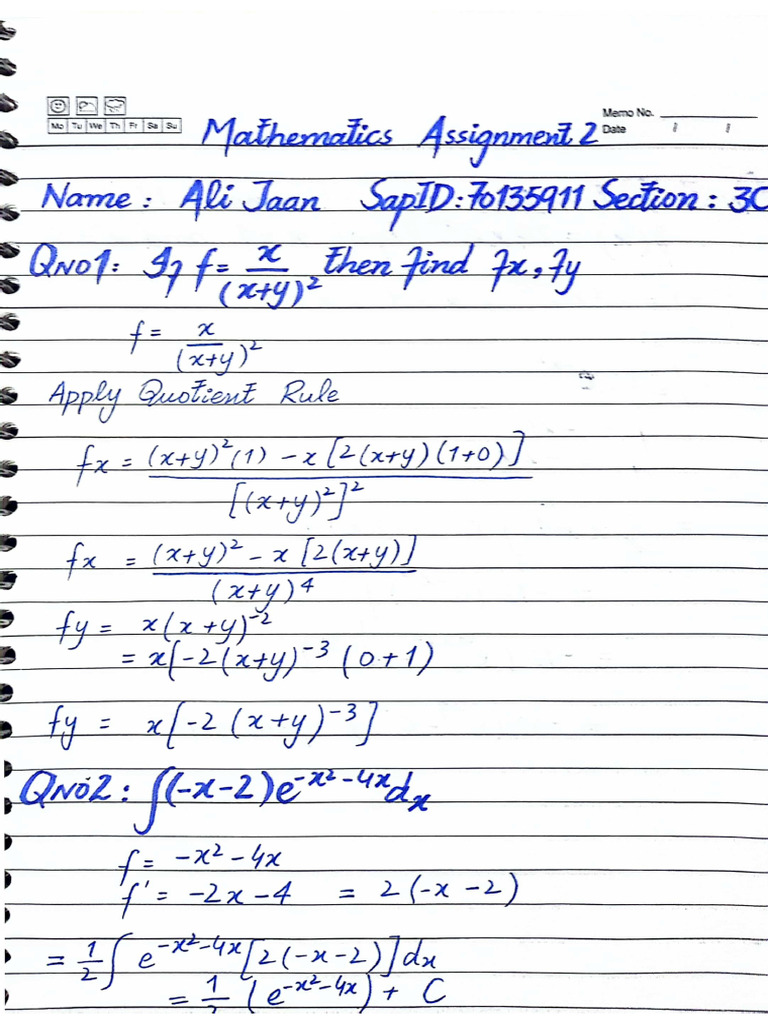 Memo No.
Mo Tu We Th Fr Sa Su
Date / /
Mathematics Assignment 2
Name : Ali Jaan SapID: 70135911 Section : 3C
QNO1: If f = x/(x+y)² then find fx, fy
f = x/(x+y)²
Apply Quotient Rule
fx = (x+y)²(1) - x[2(x+y)(1+0)]
[(x+y)²]²
fx = (x+y)² - x[2(x+y)]
(x+y)⁴
fy = x(x+y)⁻²
= x[-2(x+y)⁻³ (0+1)
fy = x[-2(x+y)⁻³]
QNO2: ∫(-x-2)e^{-x²-4x}dx
f = -x²-4x
f' = -2x-4 = 2(-x-2)
= 1/2 ∫ e^{-x²-4x}[2(-x-2)]dx
= 1/2 (e^{-x²-4x}) + C